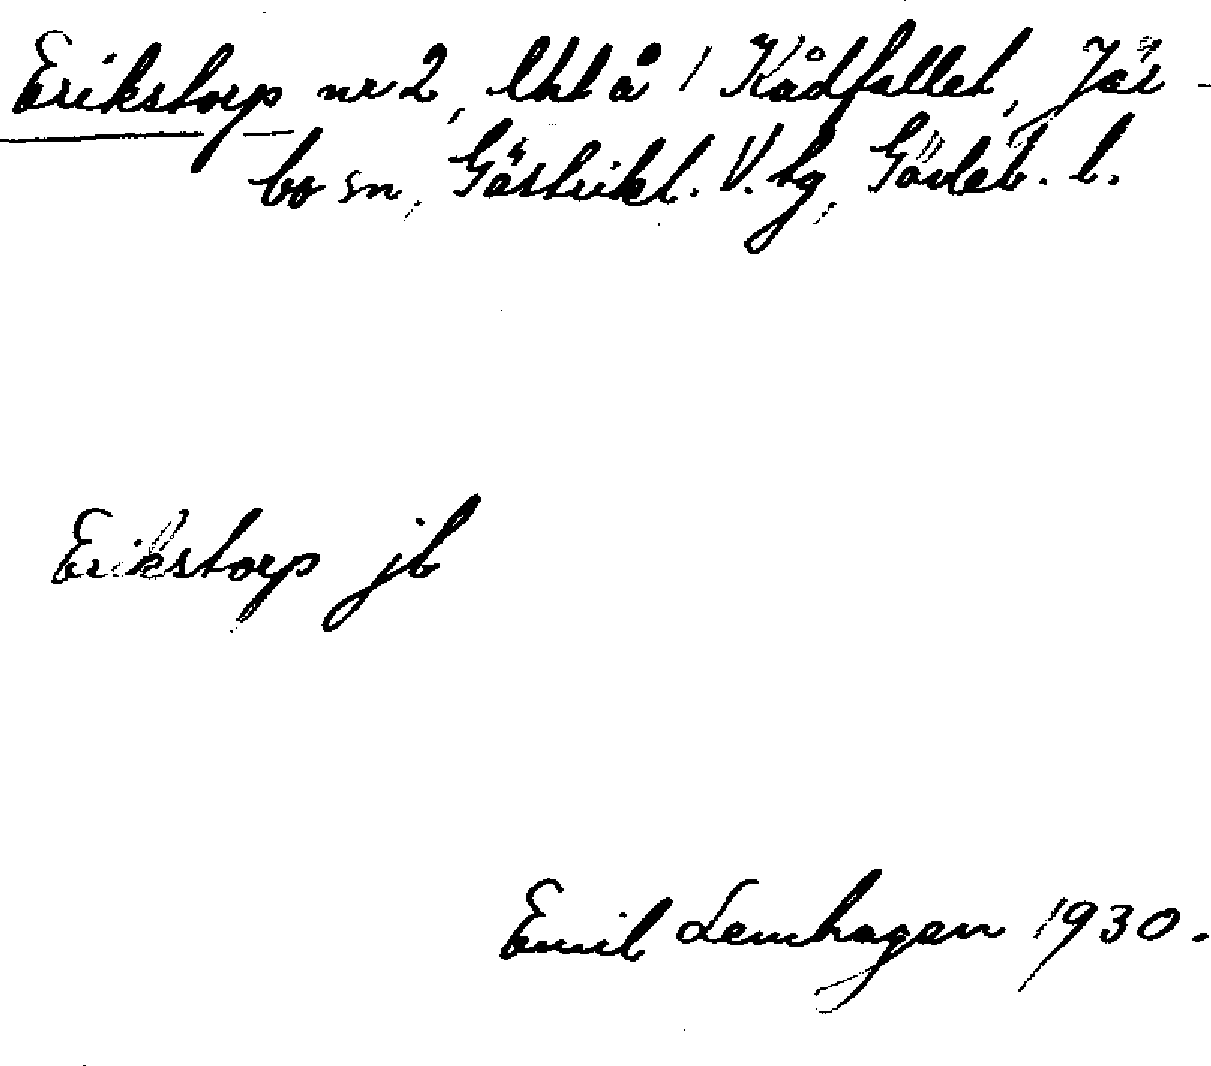 Erikstorp nr 2, lht å 1 Kådfallet, Jär-
bo sn, Gästrikl. V. tg, Gävleb. l.
Erikstorp jb
Emil Lemhagen 1930.